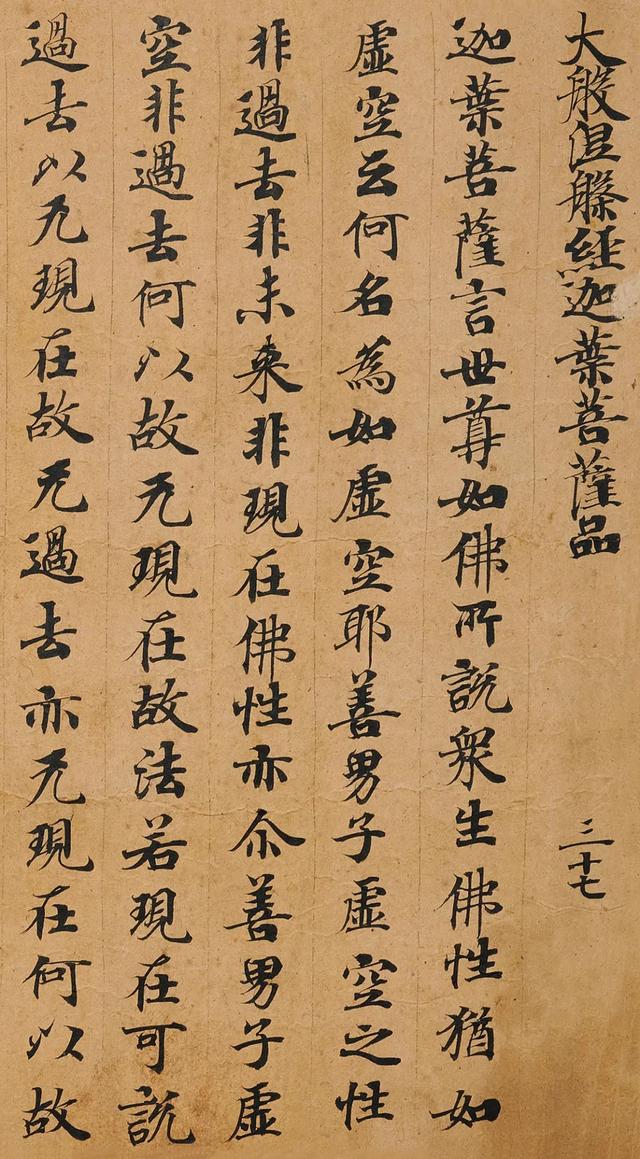 大般涅槃經迦葉菩薩品 三十七
迦葉菩薩言世尊如佛所說衆生佛性猶如
虛空云何名為如虛空耶善男子虛空之性
非過去非未来非現在佛性亦尒善男子虛
空非過去何以故无現在故法若現在可說
過去以无現在故无過去亦无現在何以故